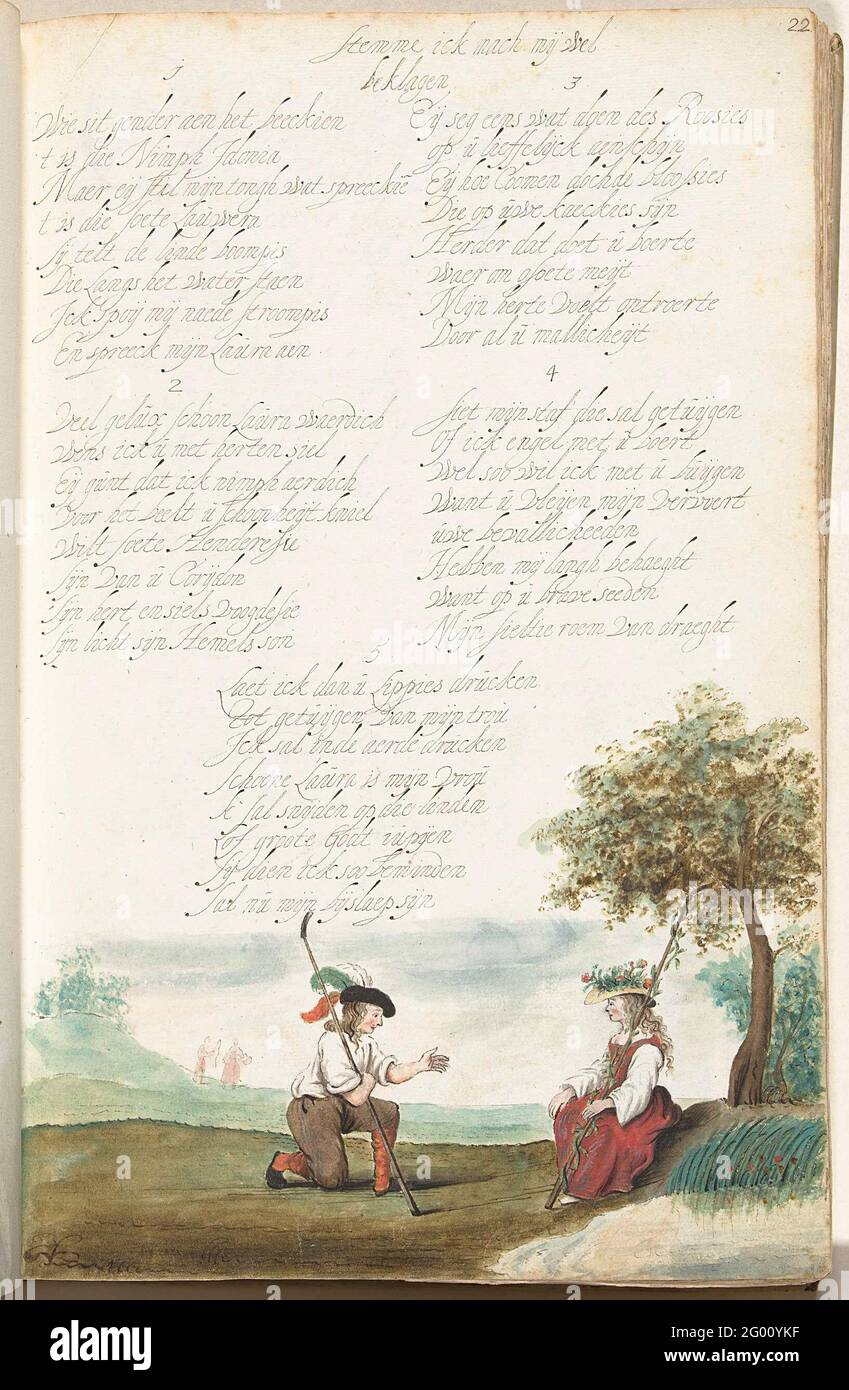 22
Stemme ick mach mij wel
beklagen
1
Wie sit gender aen het beeckien
t is die Nimph
Maer eij stil mijn tongh wat spreeckie
t is die soete Lauwera
sij telt de linde boompis
Die Langs het water staen
Ick spoij mij naede stroompis
En spreeck mijn Laura aen
2
Veel gelux schoon Laura waerdich
Wens ick u met herten siel
Eij gunt dat ick nimph aerdich
Voor het beelt u schoonheijt kniel
Wilt soete Henderesie
sijn van u Corijdon
sijn hert en siels voogdesie
sijn licht sijn Hemels son
3
Eij seg eens wat doen des Roosies
op u lieffelijck aenschijn
Eij hoe Coomen doch de bloosies
Die op uwe kaeckies sijn
Herder dat doet u boerte
Waer om o soete meijt
Mijn herte voelt ontroerte
Door al u mallicheijt
4
siet mijn staf die sal getuijgen
Of ick engel met u boert
Wel soo wil ick met u buijgen
Want u vleijen mijn vervoert
uwe bevallicheeden
Hebben mij langh behaeght
Want op u brave seeden
Mijn sieltie roem van draeght
5
Laet ick dan u Lippies drucken
Tot getuijgen van mijn trou
Ick sal inde aerde drucken
Schoone Laura is mijn vrou
k sal snijden op die linden
Lof groote Godt
Sij dien ick soo beminden
sal nu mijn bijslaep sijn
alamy
Image ID: 2G00YKF
www.alamy.com